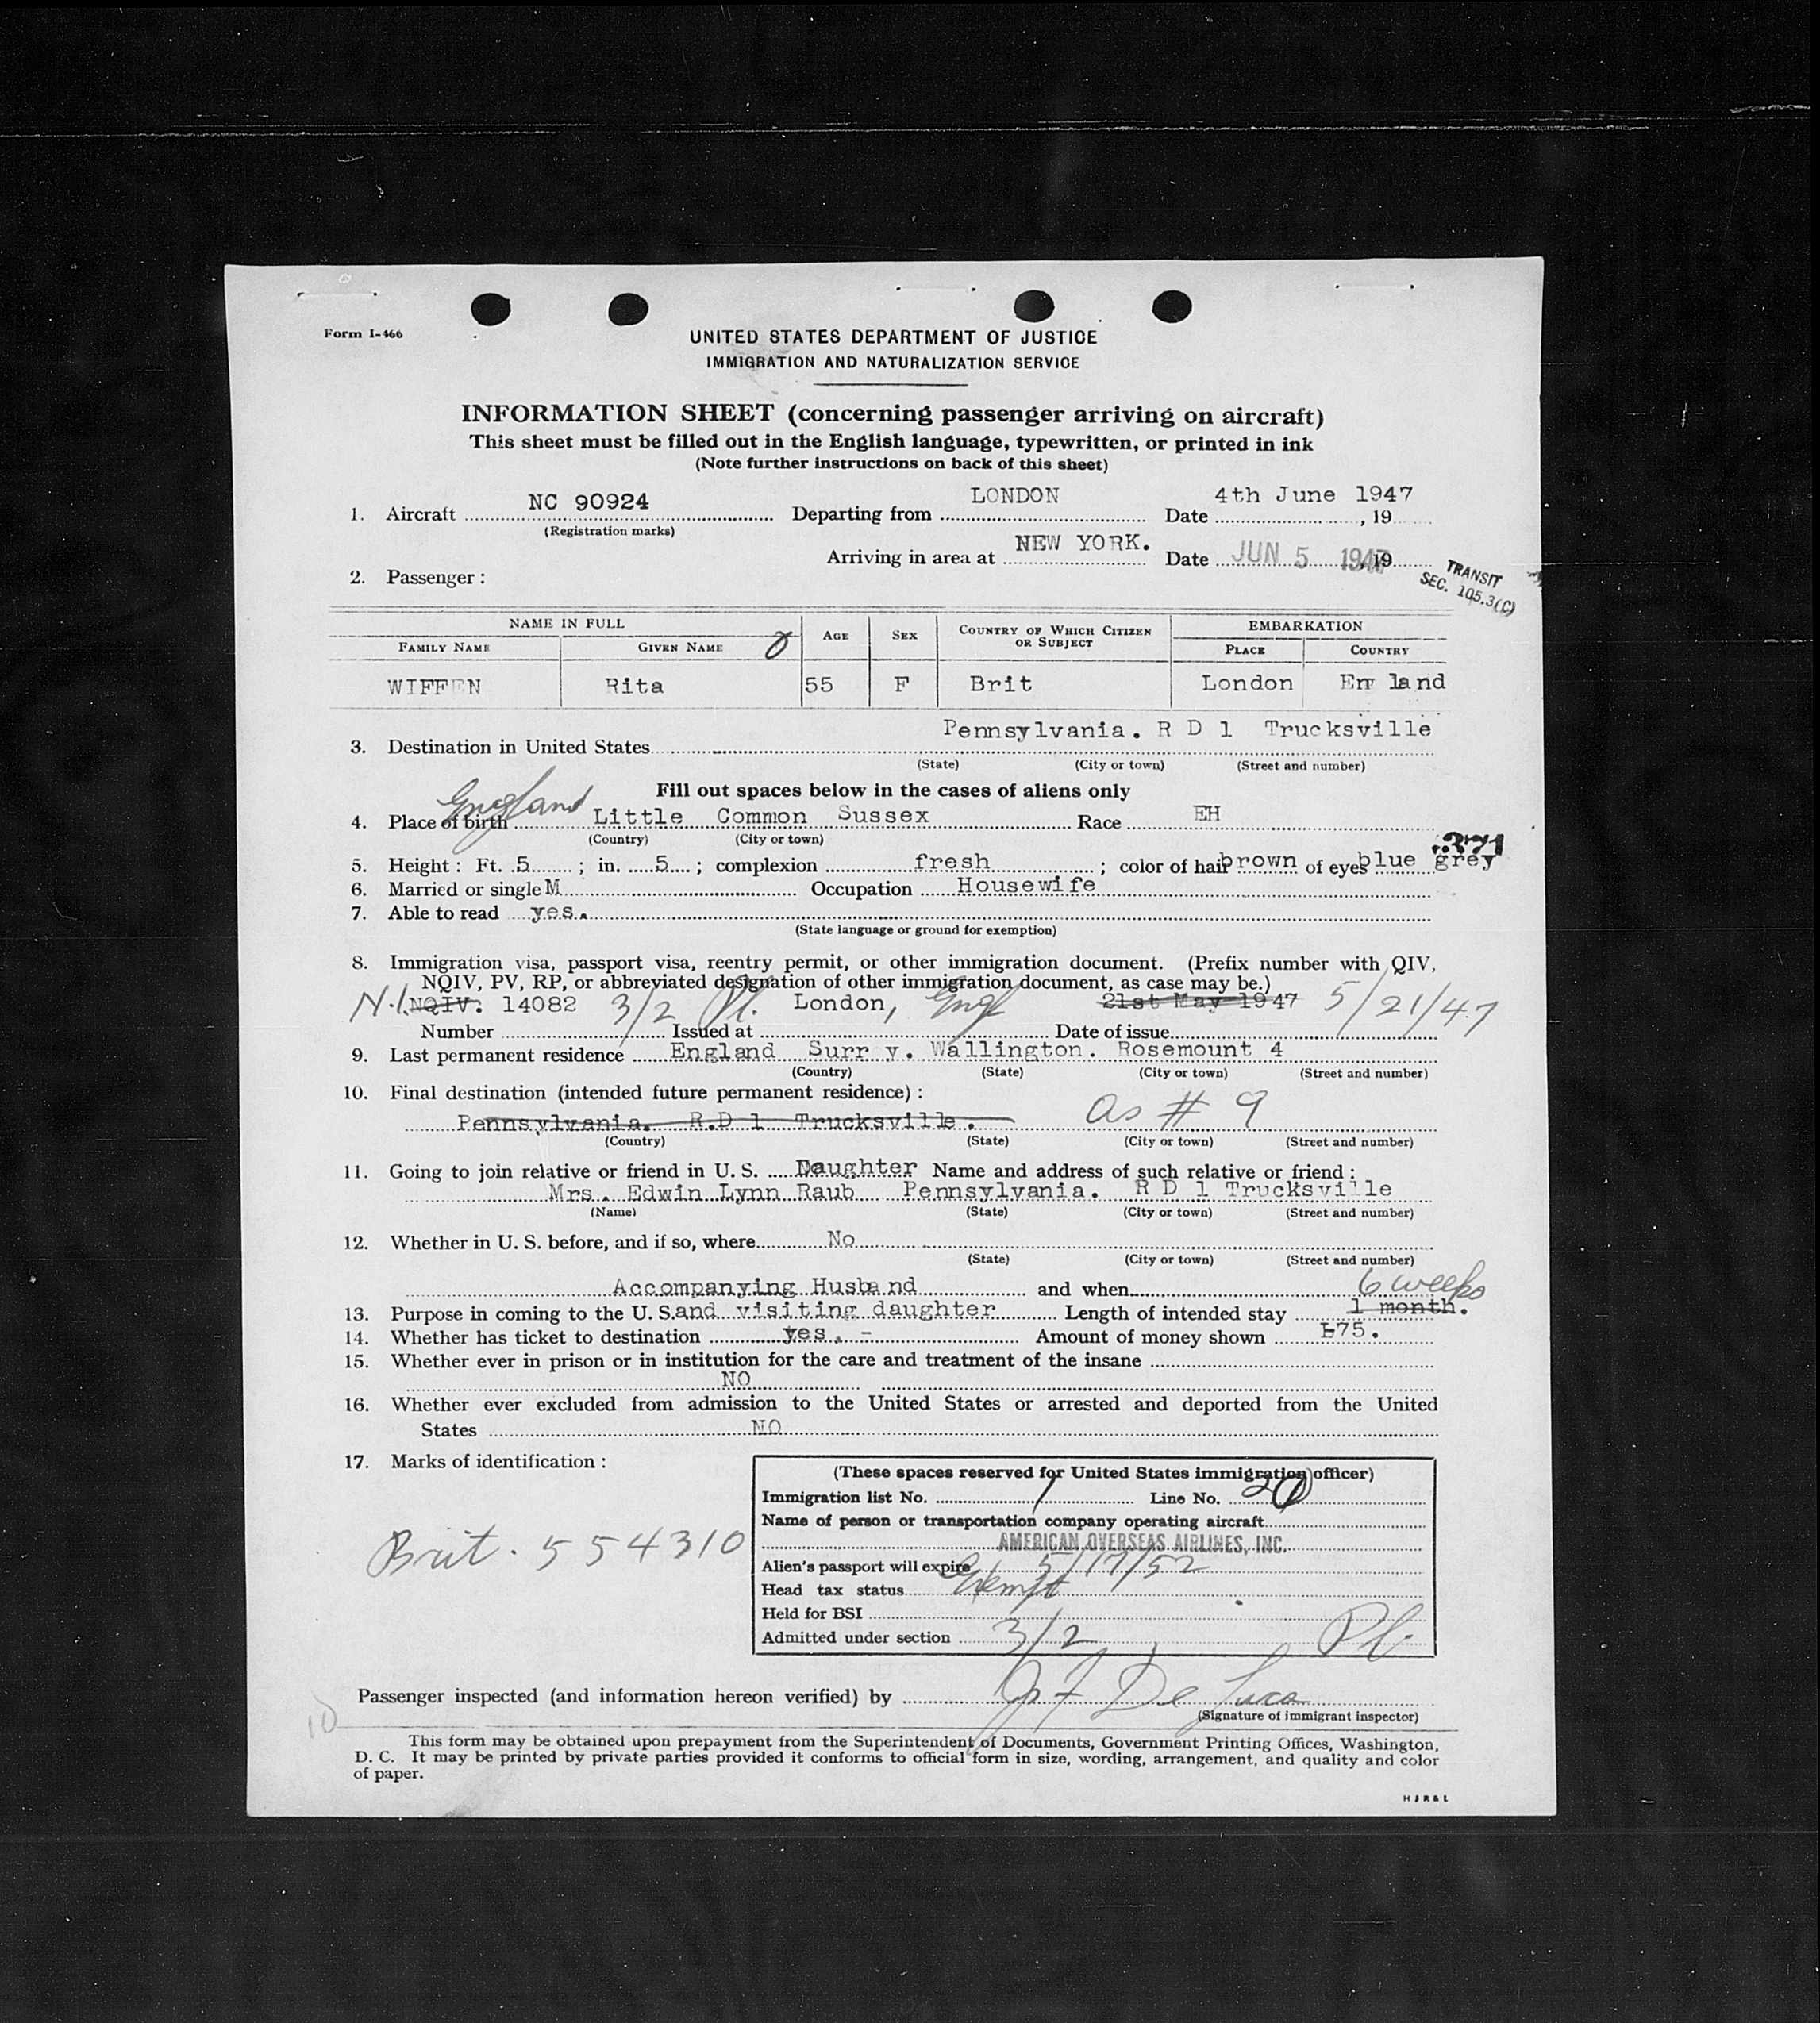 Form I-466
UNITED STATES DEPARTMENT OF JUSTICE
IMMIGRATION AND NATURALIZATION SERVICE
INFORMATION SHEET (concerning passenger arriving on aircraft)
This sheet must be filled out in the English language, typewritten, or printed in ink
(Note further instructions on back of this sheet)
1. Aircraft NC 90924 Departing from LONDON Date 4th June 1947 , 19
(Registration marks)
Arriving in area at NEW YORK. Date JUN 5 1947 , 19
TRANSIT
SEC. 105.3(C)
2. Passenger :
NAME IN FULL AGE SEX COUNTRY OF WHICH CITIZEN OR SUBJECT EMBARKATION
FAMILY NAME GIVEN NAME PLACE COUNTRY
WIFFEN Rita 55 F Brit London En land
Pennsylvania. R D 1 Trucksville
3. Destination in United States
(State) (City or town) (Street and number)
Fill out spaces below in the cases of aliens only
4. Place of birth England Little Common Sussex Race EH
(Country) (City or town)
371
5. Height : Ft. 5 ; in. 5 ; complexion fresh ; color of hair brown of eyes blue grey
6. Married or single M Occupation Housewife
7. Able to read yes.
(State language or ground for exemption)
8. Immigration visa, passport visa, reentry permit, or other immigration document. (Prefix number with QIV,
NQIV, PV, RP, or abbreviated designation of other immigration document, as case may be.)
N.I. NQIV. 14082 3/2 Pl. London, Engl 21st May 1947 5/21/47
Number Issued at Date of issue
9. Last permanent residence England Surr y. Wallington. Rosemount 4
(Country) (State) (City or town) (Street and number)
10. Final destination (intended future permanent residence) :
Pennsylvania. R.D 1 Trucksville. as # 9
(Country) (State) (City or town) (Street and number)
11. Going to join relative or friend in U. S. Daughter Name and address of such relative or friend :
Mrs. Edwin Lynn Raub Pennsylvania. R D 1 Trucksville
(Name) (State) (City or town) (Street and number)
12. Whether in U. S. before, and if so, where No
(State) (City or town) (Street and number)
Accompanying Husband and when 6 weeks
13. Purpose in coming to the U. S. and visiting daughter Length of intended stay 1 month.
14. Whether has ticket to destination yes. - Amount of money shown £75.
15. Whether ever in prison or in institution for the care and treatment of the insane
NO
16. Whether ever excluded from admission to the United States or arrested and deported from the United
States NO
17. Marks of identification :
Brit. 554310
(These spaces reserved for United States immigration officer)
Immigration list No. 1 Line No.
Name of person or transportation company operating aircraft
AMERICAN OVERSEAS AIRLINES, INC.
Alien's passport will expire 5/17/52
Head tax status Exempt
Held for BSI
Admitted under section 3/2 Pl.
Passenger inspected (and information hereon verified) by J F De Luca
(Signature of immigrant inspector)
10
This form may be obtained upon prepayment from the Superintendent of Documents, Government Printing Offices, Washington,
D. C. It may be printed by private parties provided it conforms to official form in size, wording, arrangement, and quality and color
of paper.
H J R & L